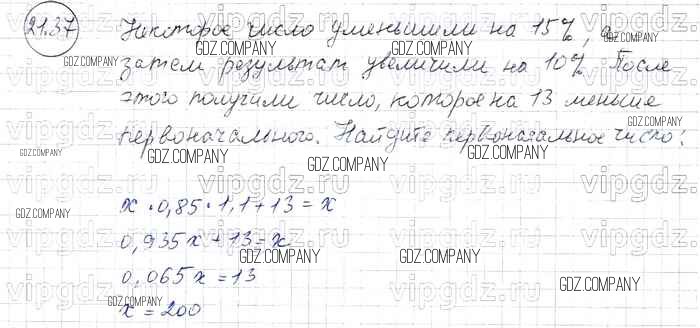 21.37 Некоторое число уменьшили на 15%, а
GDZ.COMPANY
затем результат увеличили на 10%. После
этого получили число, которое на 13 меньше
первоначального. Найдите первоначальное число.
x · 0,85 · 1,1 + 13 = x
0,935x + 13 = x
0,065x = 13
x = 200
vipgdz.ru